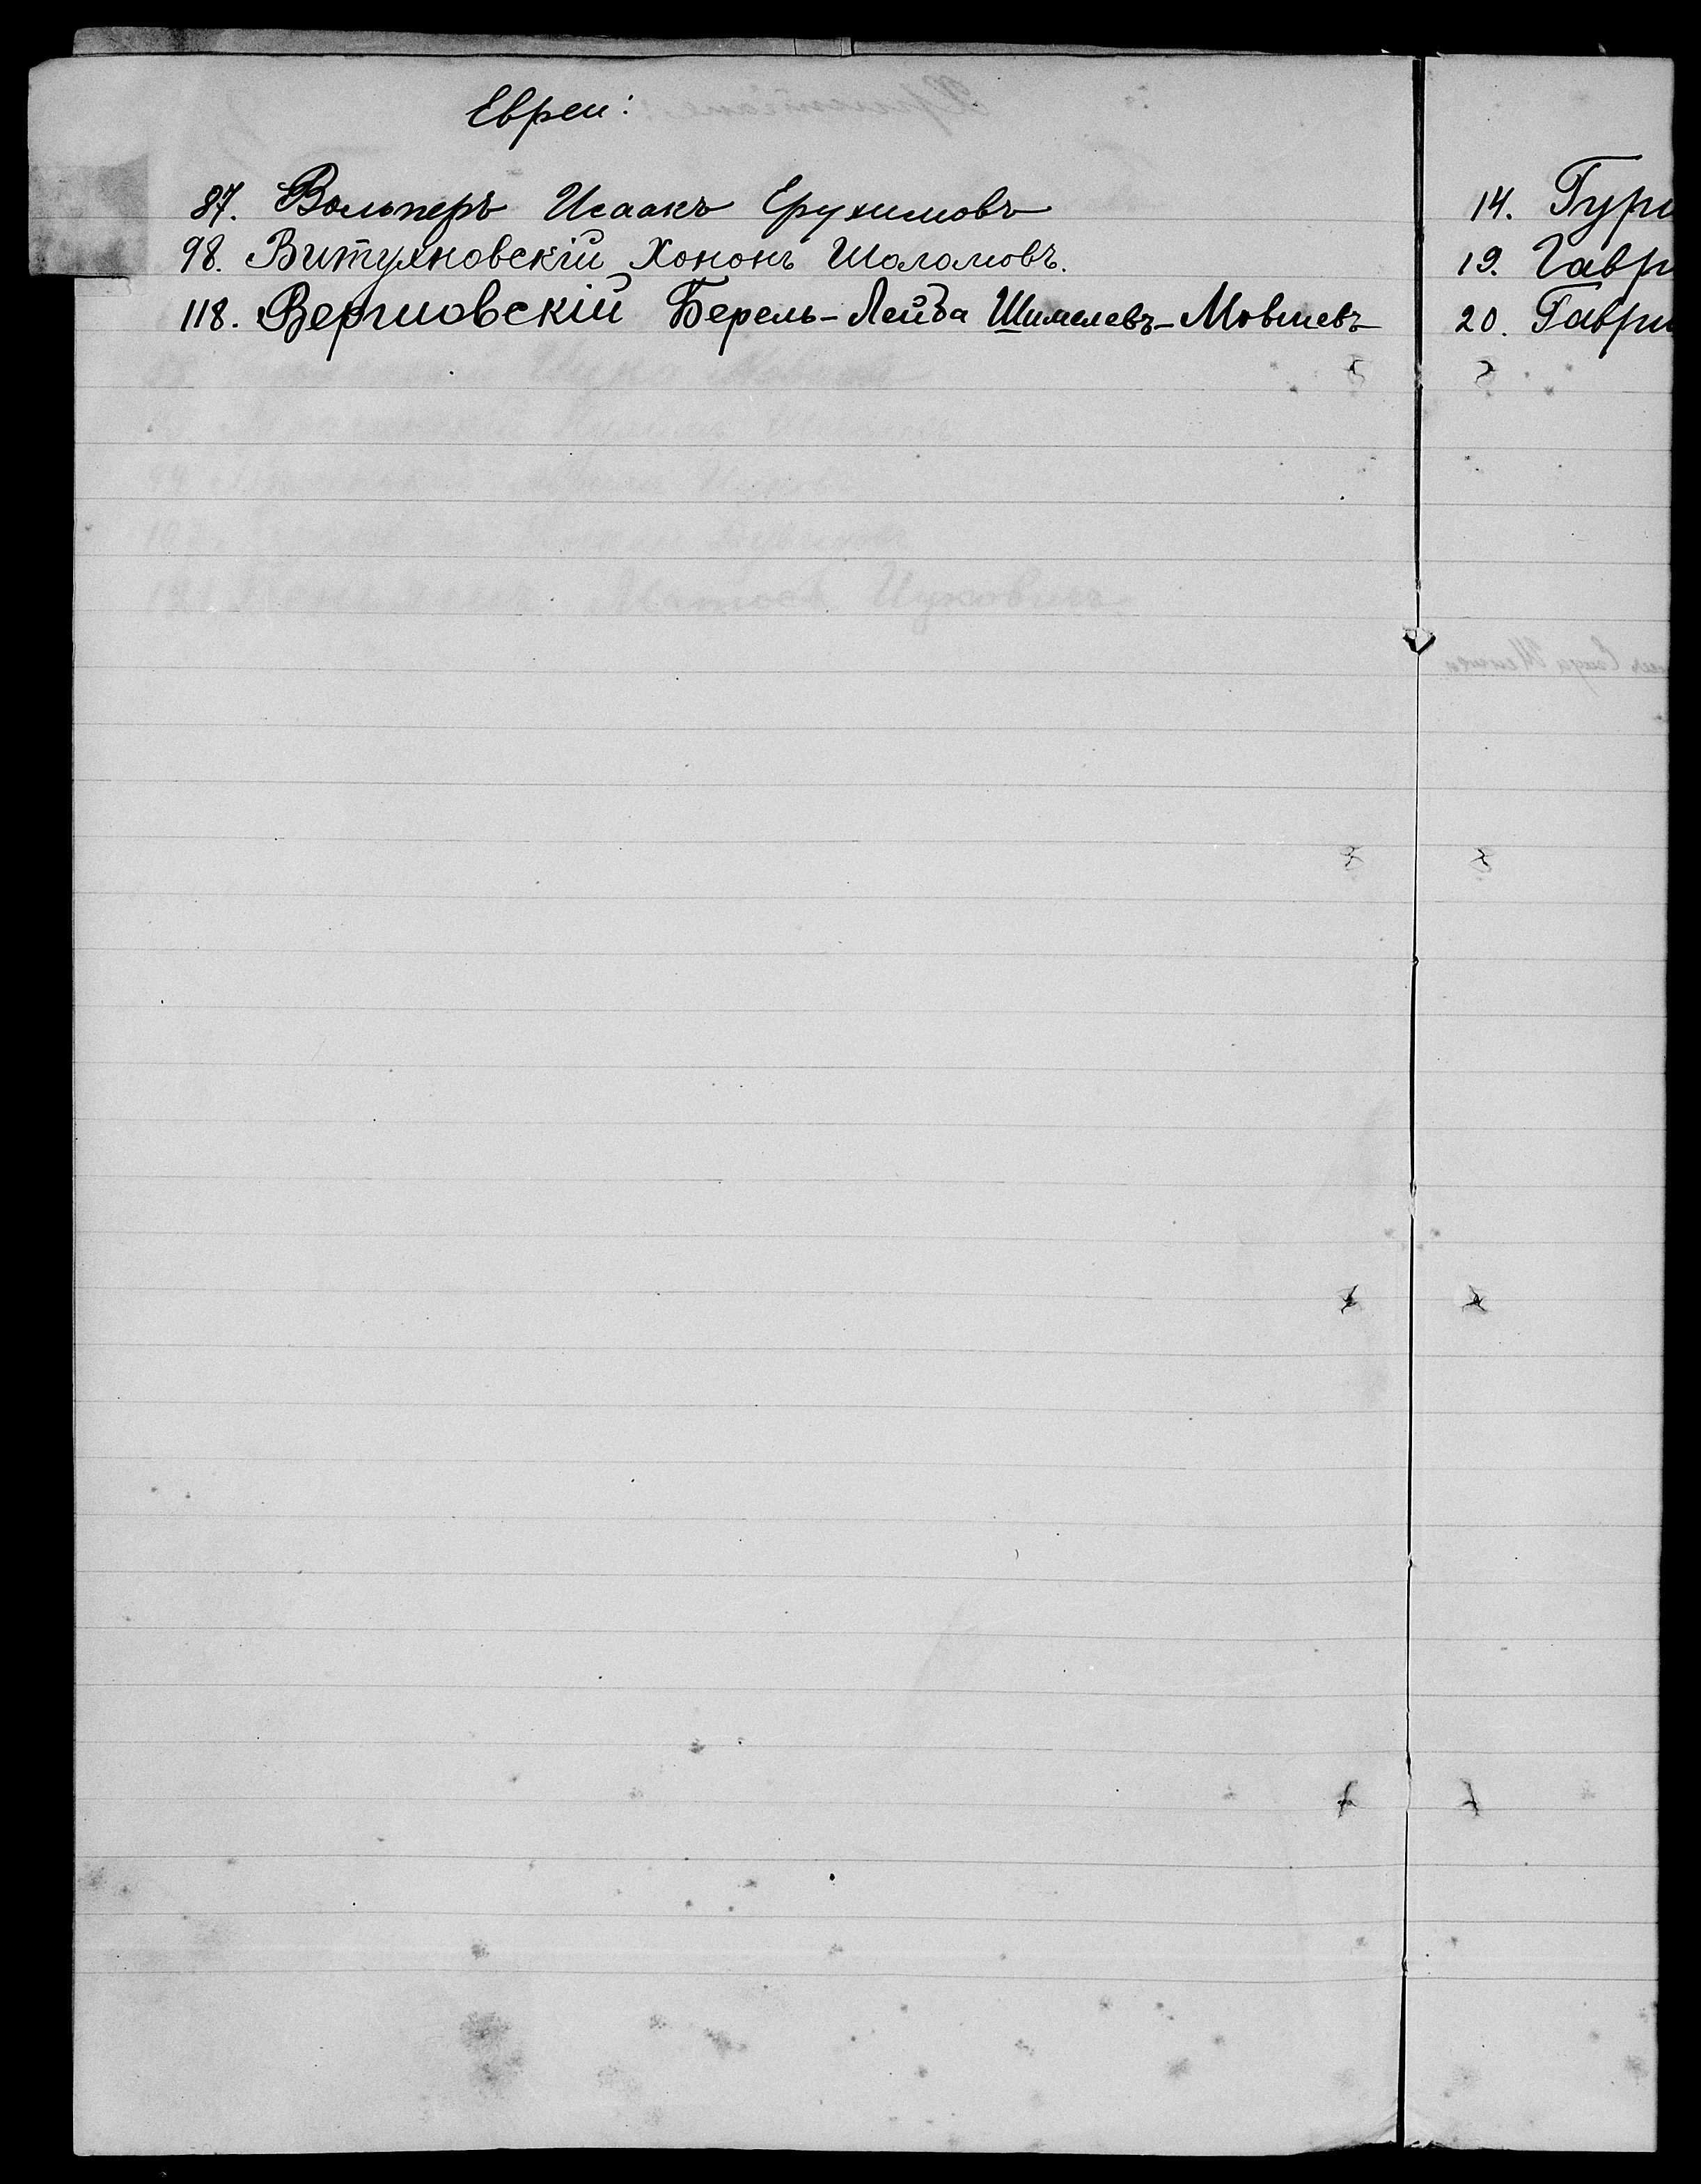 Евреи:
87. Вольперъ Исаакъ Ерухимовъ
98. Витухновскій Хононъ Шоломовъ.
118. Вергиовскій Берель-Лейба Шимелевъ-Мовшевъ
14. Гури
19. Гавр
20. Гаври